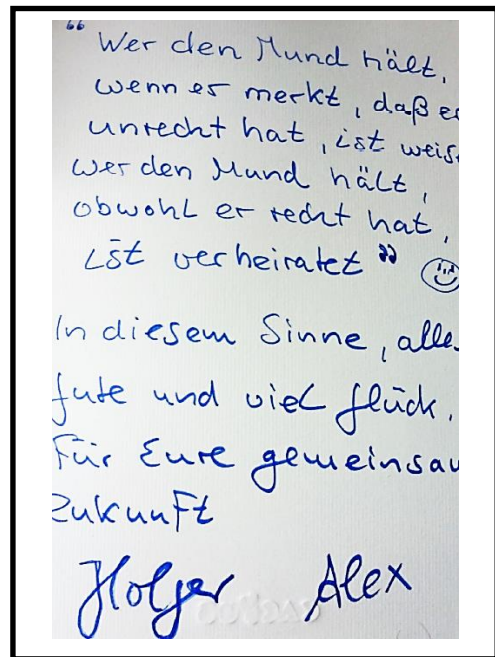 "Wer den Mund hält,
wenn er merkt, daß er
unrecht hat, ist weis
Wer den Mund hält,
obwohl er recht hat,
ist verheiratet"
In diesem Sinne, alle
gute und viel glück.
Für Eure gemeinsam
Zukunft
Holger Alex